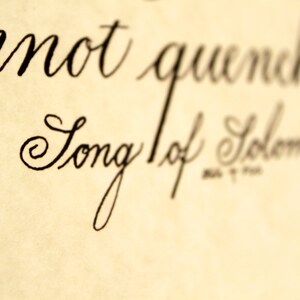 nnot quench
Song of Solom